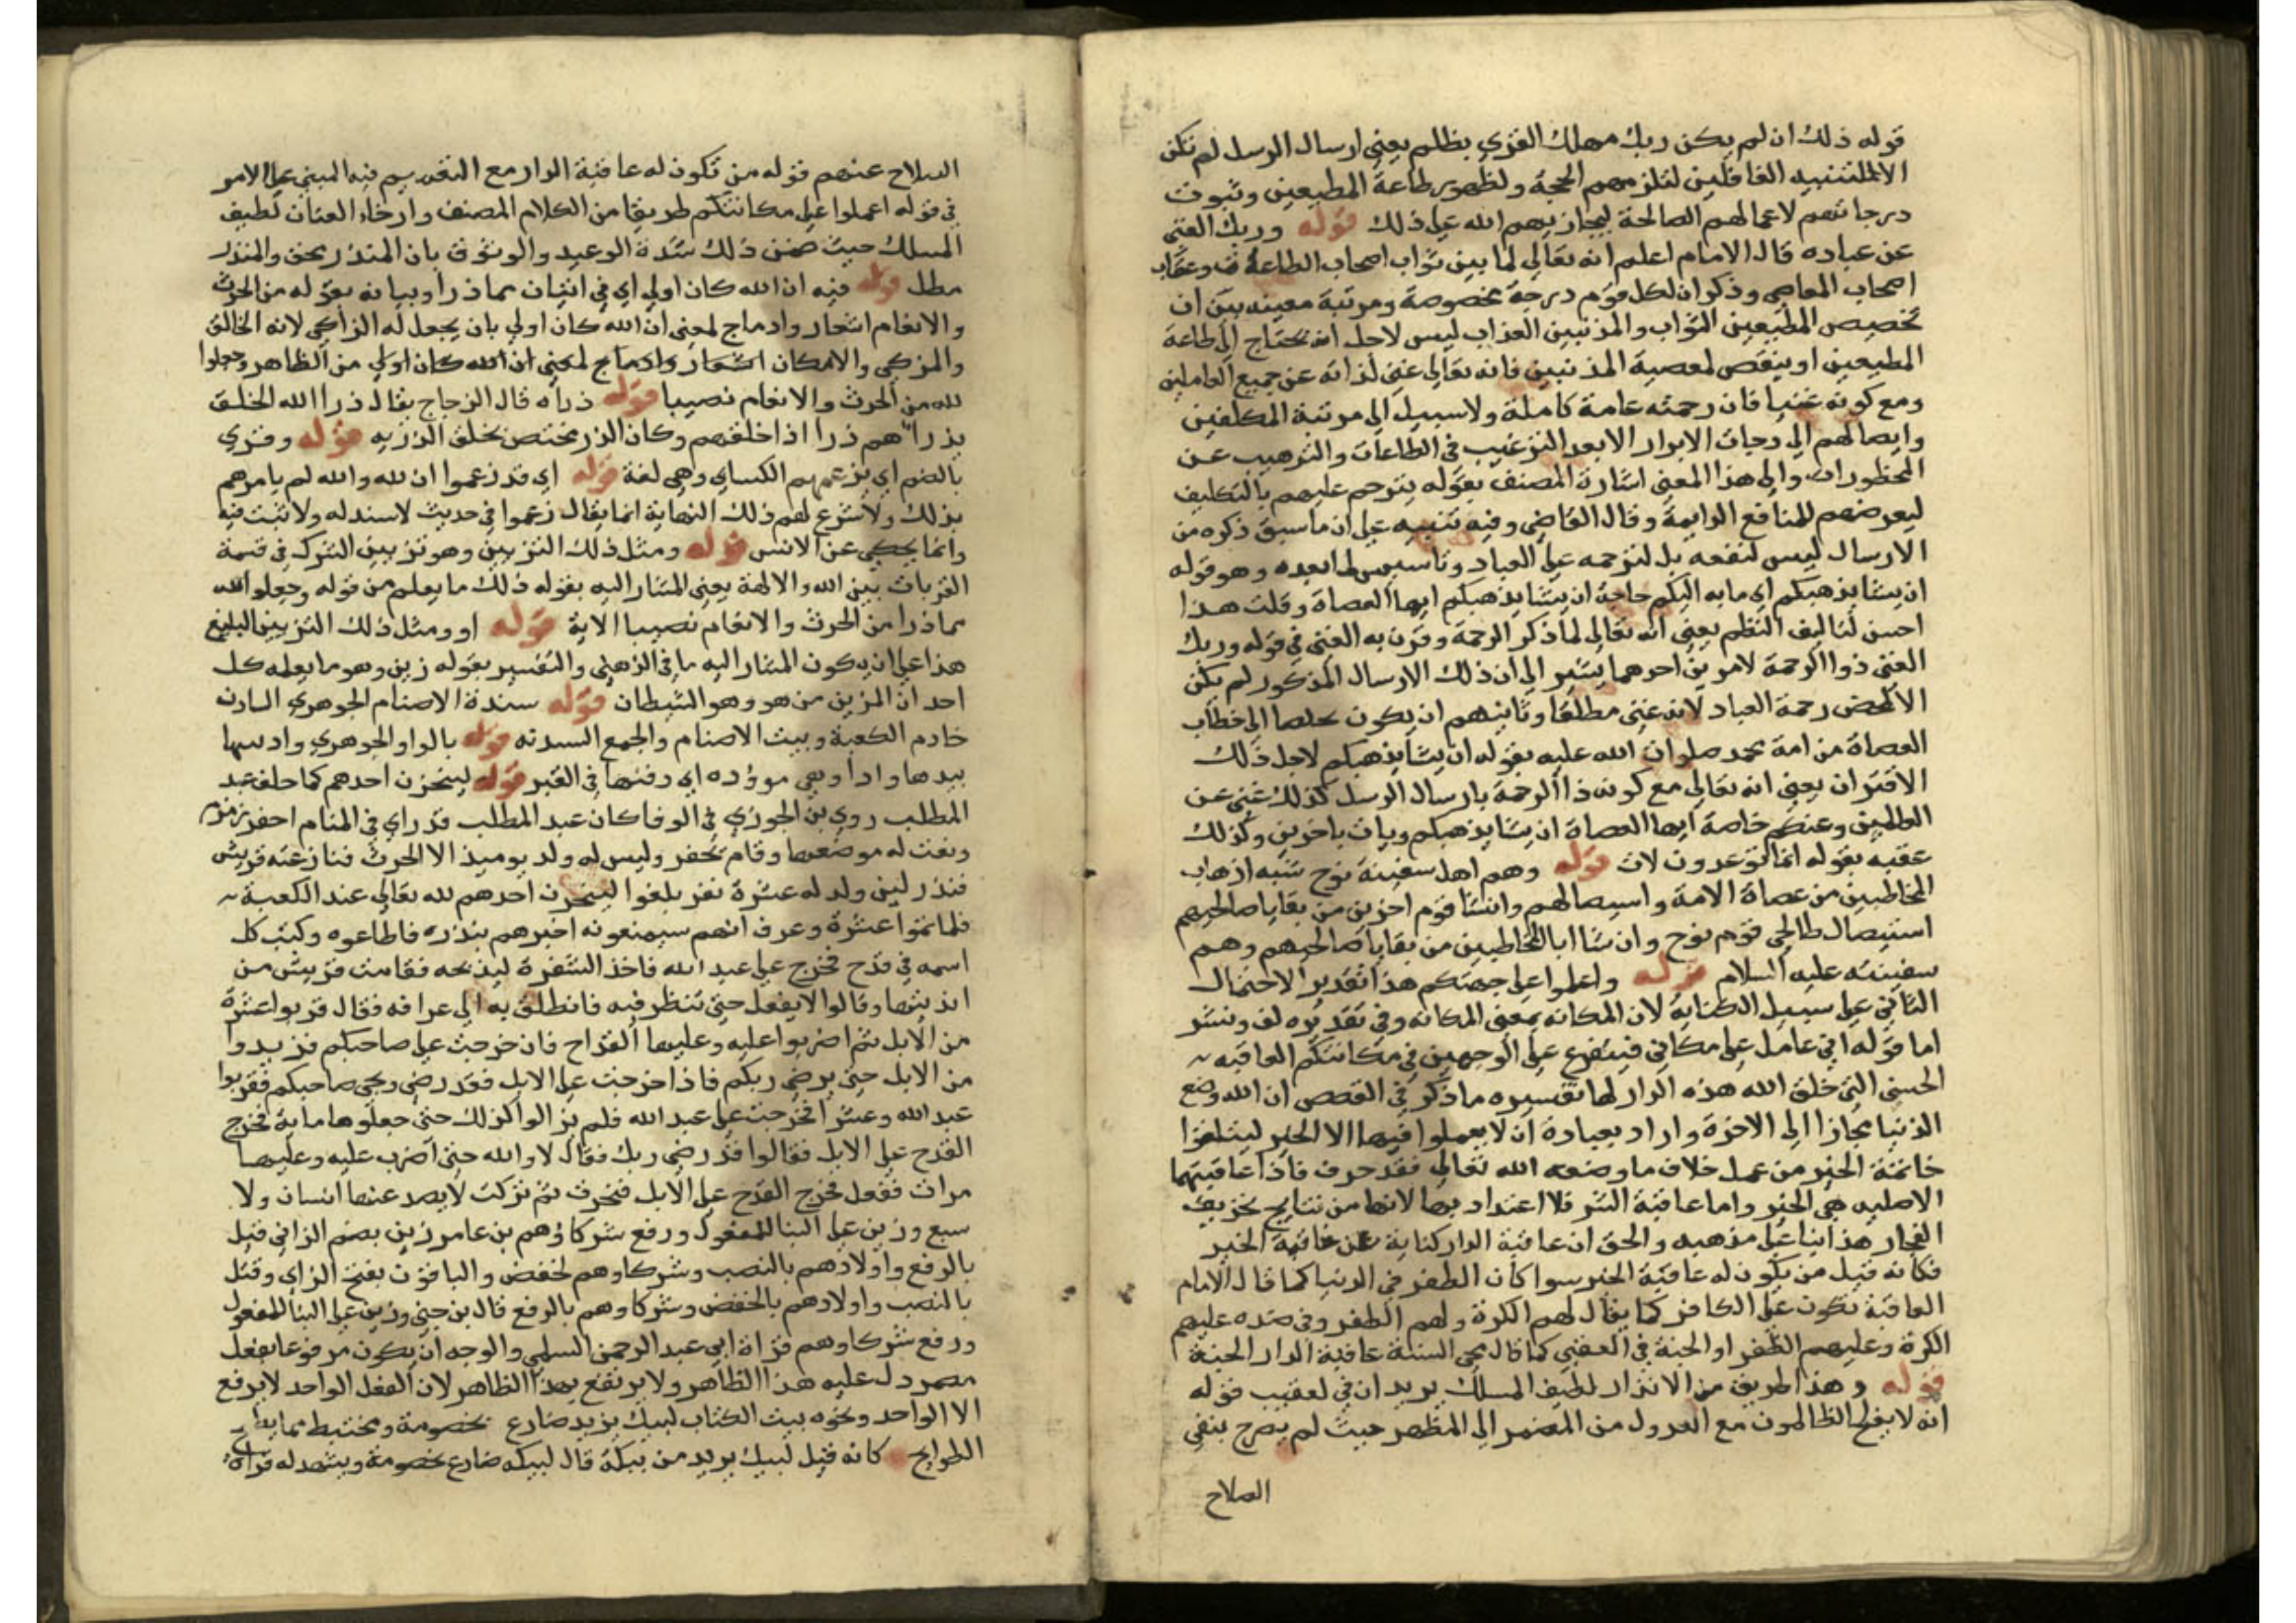 قوله ذلك ان لم يكن ربك مهلك القرى بظلم يعني ارسال الرسل لم تكن
الا للتنبيه الغافلين لتلزمهم الحجة ولظهور طاعة المطيعين وثبوت
درجاتهم لاعمالهم الصالحة ليجازيهم الله على ذلك قوله وربك الغني
عن عباده قال الامام اعلم انه تعالى لما بين ثواب اصحاب الطاعة وعقاب
اصحاب المعاصي وذكر ان لكل قوم درجة مخصوصة ومرتبة معينه بين ان
تخصيص المطيعين الثواب والمذنبين العذاب ليس لاجل انه يحتاج الى طاعة
المطيعين او ينقص لمعصية المذنبين فانه تعالى غني لذاته عن جميع العاملين
ومع كونه غنيا فان رحمته عامة كاملة ولا سبيل الى مرتبة المكلفين
وايصالهم الى درجات الابرار الا بعد الترغيب في الطاعات والترهيب عن
المحظورات والى هذا المعنى اشارة المصنف بقوله يترحم عليهم بالتكليف
ليعرضهم للمنافع الدايمة وقال القاضي وفيه تنبيه على ان ما سبق ذكره من
الارسال ليس لنفعه بل لترحمه على العباد وتاسيس لما بعده وهو قوله
ان يشا يذهبكم اي ما به اليكم حاجة ان يشا يذهبكم ايها العصاة وقلت هذا
احسن لتاليف النظم يعني انه تعالى لما ذكر الرحمة وقرن به الغنى في قوله وربك
الغني ذوا الرحمة لامرين احدهما يشير الى ان ذلك الارسال المذكور لم يكن
الا لمحض رحمة العباد لانه غني مطلقا وثانيهم ان يكون تخلصا الى خطاب
العصاة من امة محمد صلوات الله عليه بقوله ان يشا يذهبكم لاجل ذلك
الاقتران يعني انه تعالى مع كونه ذا الرحمة بارسال الرسل كذلك غني عن
العالمين وعنكم خاصة ايها العصاة ان يشا يذهبكم ويات باخرين وكذلك
عقبه بقوله انما توعدون لات قوله وهم اهل سفينة نوح شبه اذهاب
المخاطبين من عصاة الامة واستيصالهم وانشا قوم اخرين من بقايا صالحيهم
استيصال طالحي قوم نوح وان شا ابا المخاطبين من بقايا صالحيهم وهم
سفينته عليه السلام قوله واعملوا على جهتكم هذا تقدير الاحتمال
الثاني على سبيل الكناية لان المكانه بمعنى المكانه وفي تقديره لف ونشر
اما قوله اني عامل على مكانتي فيتفرع على الوجهين في مكانتكم العاقبه
الحسنى التي خلق الله هذه الدار لها تفسيره ما ذكر في القصص ان الله وضع
الدنيا مجازا الى الاخرة واراد بعبادة ان لا يعملوا فيها الا الخير ليتلقوا
خاتمة الخير من عمل خلاف ما وضعه الله تعالى فقد حرف فاذا عاقبتهما
الاصليه هي الخير واما عاقبة الشر فلا اعتداد بها لانها من نتايج تحريف
الفجار هذا بنا على مذهبه والحق ان عاقبة الدار كناية عن خاتمة الخير
فكانه قيل من يكون له عاقبة الخير سوا كان الظفر في الدنيا كما قال الامام
العاقبة تكون على الكافر كما يقال لهم الكرة ولهم الظفر وفي ضده عليهم
الكرة وعليهم الظفر او الجنة في العقبى كما قال محي السنة عاقبة الدار الجنة
قوله وهذا طريق من الانذار لطيف المسلك يريد ان في تعقيب قوله
انه لا يفلح الظالمون مع العدول من المضمر الى المظهر حيث لم يصرح بنفي
الصلاح
السلاح عنهم قوله من تكون له عاقبة الدار مع التقديم فيه المبني على الامر
في قوله اعملوا على مكانتكم طريقا من الكلام المصنف وارخاء العنان لطيف
المسلك حيث ضمن ذلك شدة الوعيد والوثوق بان المنذر محق والمنذر
مطل قوله فيه ان الله كان اولى اي في اتيان مما ذرا وبيانه بقوله من الحرث
والانعام اشعار وادماج لمعنى ان الله كان اولى بان يجعل له الزاكي لانه الخالق
والمزكي والامكان اشعار وادماج لمعنى ان الله كان اولى من الظاهر وجعلوا
لله من الحرث والانعام نصيبا قوله ذراه قال الزجاج يقال ذرا الله الخلق
يذراهم ذرا اذا خلقهم وكان الذر مختص بخلق الذريه قوله وقرى
بالضم اي بزعمهم الكساي وهي لغة قوله اي قد زعموا ان لله والله لم يامرهم
بذلك ولا شرع لهم ذلك النهاية انما يقال زعموا في حديث لا سند له ولا ثبت فيه
وانما يحكى عن الالسن قوله ومثل ذلك التزيين وهو تزيين الشرك في قسمة
القربات بين الله والالهة يعني المشار اليه بقوله ذلك ما يعلم من قوله وجعلوا لله
مما ذرا من الحرث والانعام نصيبا الاية قوله او ومثل ذلك التزيين البليغ
هذا على ان يكون المشار اليه ما في الذهني والتفسير بقوله زين وهو ما يعلمه كل
احد ان المزين من هو وهو الشيطان قوله سدنة الاصنام الجوهري السادن
خادم الكعبة وبيت الاصنام والجمع السدنه قوله بالواو الجوهري واد بنتها
يئدها وادا وهي موؤده اي دفنها في القبر قوله لينحرن احدهم كما حلف عبد
المطلب روى بن الجوزي في الوفا كان عبد المطلب قد راي في المنام احفر زمزم
ونعت له موضعها وقام يحفر وليس له ولد يوميذ الا الحرث فنازعته قريش
فنذر لين ولد له عشرة نفر بلغوا لينحرن احدهم لله تعالى عند الكعبة
فلما تموا عشرة وعرف انهم سيمنعونه اخبرهم بنذره فاطاعوه وكتب كل
اسمه في قدح فخرج على عبد الله فاخذ الشفرة ليذبحه فقامت قريش من
انديتها وقالوا لا يفعل حتى تنظر فيه فانطلق به الى عرافه فقال قربوا عشرة
من الابل ثم اضربوا عليه وعليها القداح فان خرجت على صاحبكم فزيدوا
من الابل حتى يرضى ربكم فاذا خرجت على الابل فقد رضي ونجى صاحبكم فقربوا
عبد الله وعشرا فخرجت على عبد الله فلم يزالوا كذلك حتى جعلوها ماية فخرج
القدح على الابل فقالوا قد رضي ربك فقال لا والله حتى اضرب عليه وعليها
مرات ففعل فخرج القدح على الابل فنحرت ثم تركت لا يصد عنها انسان ولا
سبع وزين على البنا للمفعول ورفع شركاؤهم بن عامر زين بضم الزاني قبل
بالرفع واولادهم بالنصب وشركاوهم لخفض والباقون بفتح الزاي وقتل
بالنصب واولادهم بالخفض وشركاوهم بالرفع قال بن جني وزين على البنا للمفعول
ورفع شركاوهم قراة ابي عبد الرحمن السلمي والوجه ان يكون مرفوعا بفعل
مضمر دل عليه هذا الظاهر ولا يرتفع بهذا الظاهر لان الفعل الواحد لا يرفع
الا الواحد ونحوه بيت الكتاب لبيك يزيد ضارع لخصومة ومختبط مما يطيح
الطوايح كانه قيل لبيك يزيد من يبكه قال ليبكه ضارع لخصومة ويشهد له قراة